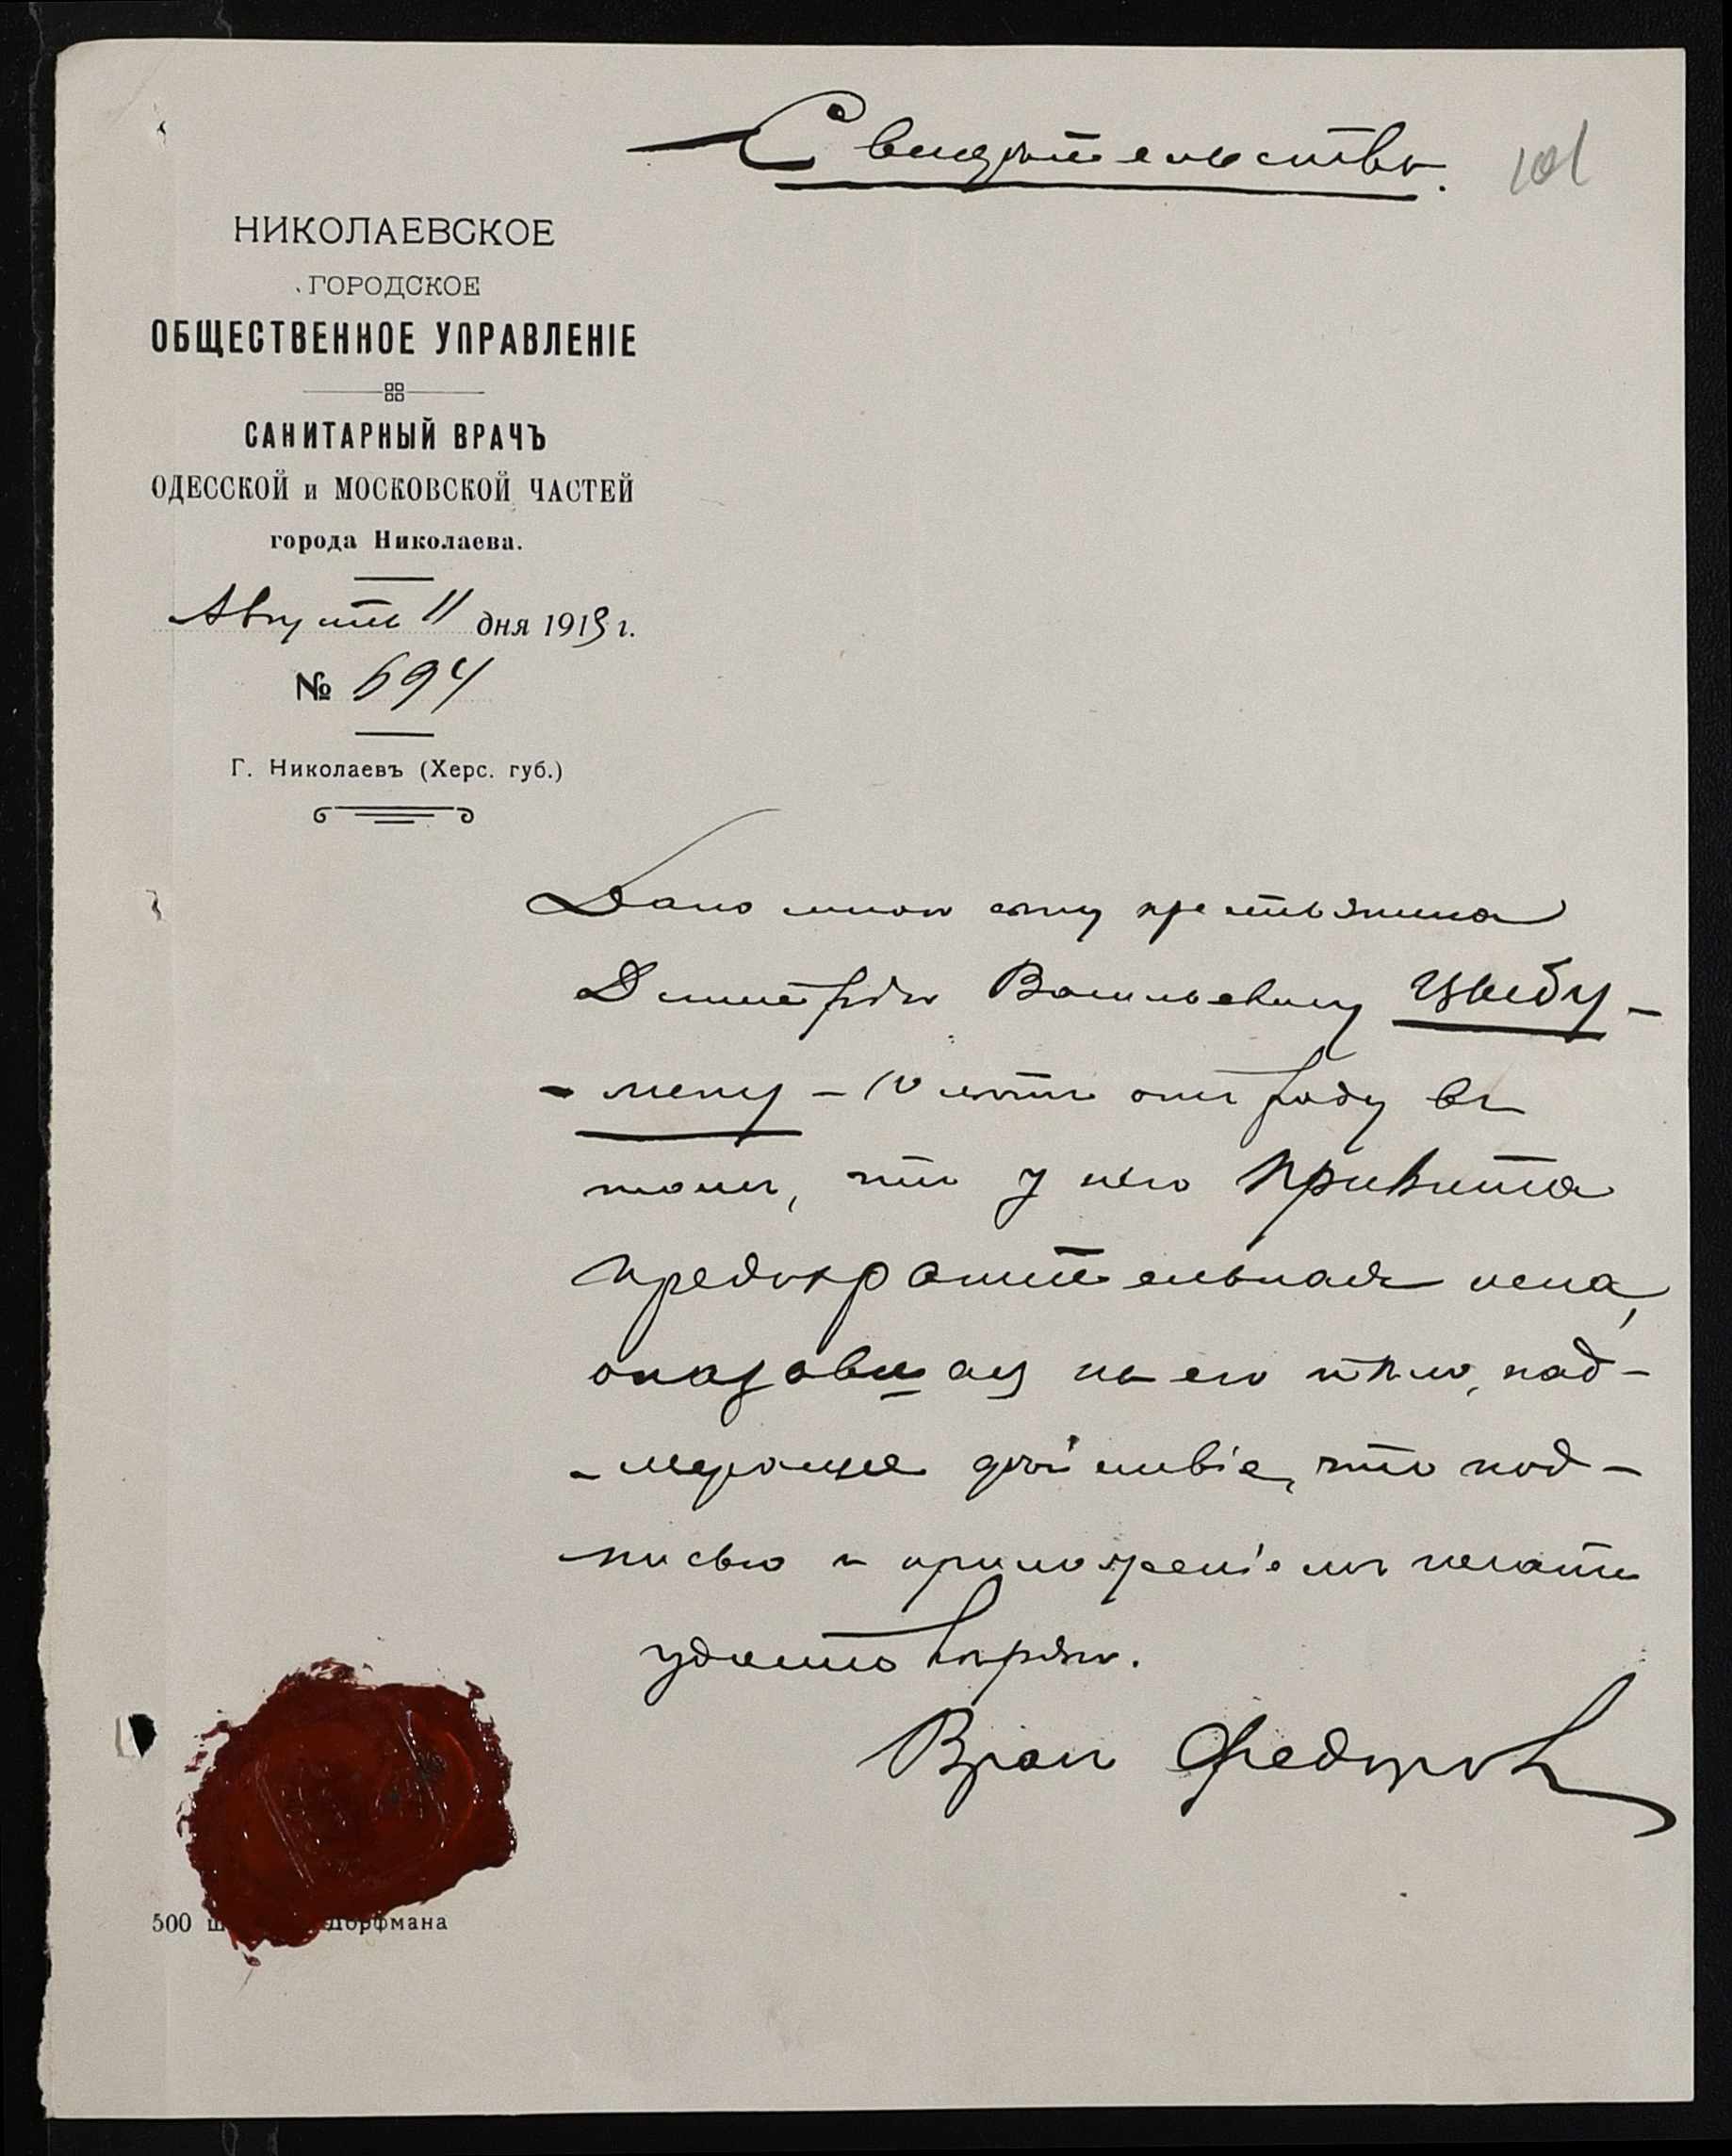 Свидѣтельство.
101
НИКОЛАЕВСКОЕ
ГОРОДСКОЕ
ОБЩЕСТВЕННОЕ УПРАВЛЕНІЕ
САНИТАРНЫЙ ВРАЧЪ
ОДЕССКОЙ и МОСКОВСКОЙ ЧАСТЕЙ
города Николаева.
Августа 11 дня 1913 г.
№ 694
Г. Николаевъ (Херс. губ.)
Дано мною сыну крестьянина
Димитрію Васильевичу Цыбу-
-леку - 10 лѣтъ отъ роду въ
томъ, что у него привита
предохранительная оспа,
оказавшая на его тѣло, над-
-лежащее дѣйствіе, что под-
-писью и приложеніемъ печати
удостовѣряю.
Врач Федоров
500 Дорфмана